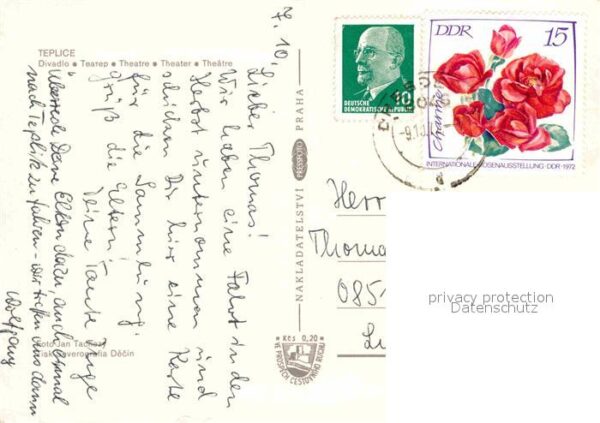 TEPLICE
Divadlo ● Театер ● Theatre ● Theater ● Théâtre
7. 10.
Lieber Thomas!
Wir haben eine Fahrt in den
Herbst unternommen und
schicken Dir hier eine Karte
für die Sammlung.
Grüß die Eltern!
Deine Tante Inge
Überrede Deine Eltern dazu, auch einmal
nach Teplitz zu fahren - wir treffen uns dann
Wolfgang
Foto Jan
Děčín
NAKLADATELSTVÍ PRESSFOTO PRAHA
Kčs 0,20
VE PROSPĚCH CESTOVNÍHO RUCHU
DEUTSCHE
DEMOKRATISCHE REPUBLIK
10
DDR 15
INTERNATIONALE ROSENAUSSTELLUNG · DDR · 1972
DRESDEN
Herr
Thoma
085
privacy protection
Datenschutz